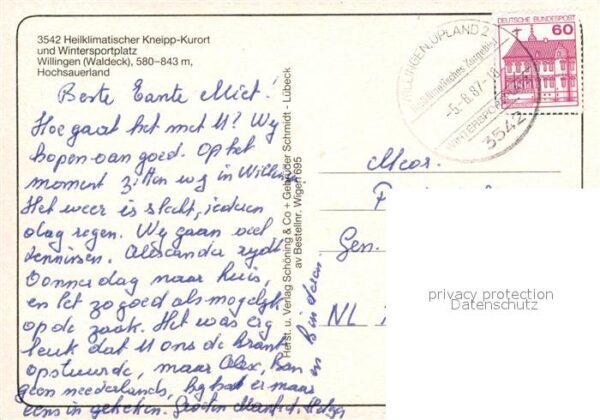 3542 Heilklimatischer Kneipp-Kurort
und Wintersportplatz
Willingen (Waldeck), 580–843 m,
Hochsauerland
Beste Tante Miet!
Hoe gaat het met U? Wy
hopen van goed. Op het
moment zitten wy in Willingen
Het weer is slecht, iedere
dag regen. Wy gaan veel
tennissen. Alexander rydt
Donnerdag naar huis,
en let zo goed als mogelijk
op de zaak. Het was erg
leuk dat U ons de krant
opstuurde, maar Alex, kan
geen neederlands, hy hat er maar
eens in gekeken.
Herst. u. Verlag Schöning & Co + Gebrüder Schmidt - Lübeck
av Bestellnr. Wige 695
WILLINGEN, UPLAND 2
Heilklimatisches
-5.-8.87-18
WINTERSPORT
3542
DEUTSCHE BUNDESPOST
60
Mevr.
Gen.
NL
privacy protection
Datenschutz